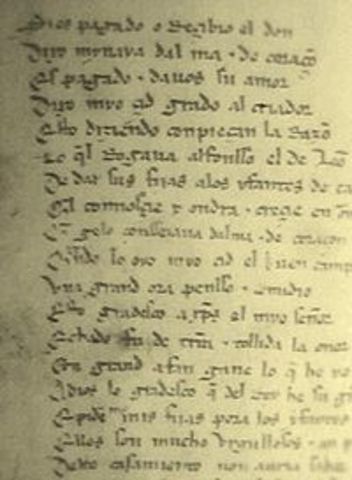 Si es pagado o reçibio el don
Dixo mynaya dal ma · de coraço
Es pagado · dauos su amor
Dixo myo çid grado al criador
Esto diziendo conpieçan la Razo
Lo ql Rogaua alfonsso el de Leo
De dar sus fijas alos yfantes de ca
Ql connosçie y ondra · creçie en
Q gelo conseiaua dalma · de coraçon
Quãdo lo oyo myo çid el buen camp
Vna grand ora pensso · comidio
Esto gradesco a xps el myo señor
Echado fu de tirra · tollida la onor
Con grand afan gane lo q he yo
A dios lo gradesco q del Rey he su g
E pide me mis fijas pora los yfantes
Ellos son mucho vrgullosos · an p
Deste casamiento non auria sabor